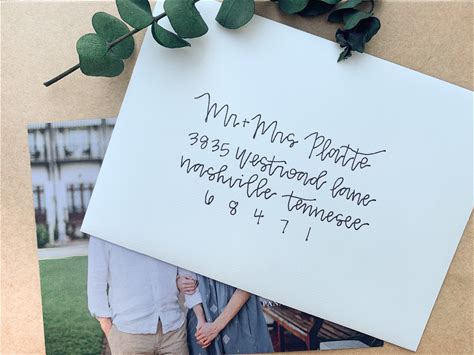 Mr + Mrs Platte
3835 Westwood lane
nashville tennesee
68471